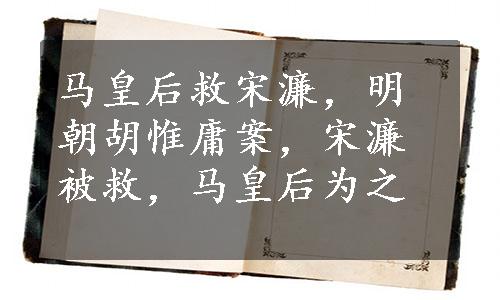 马皇后救宋濂，明
朝胡惟庸案，宋濂
被救，马皇后为之